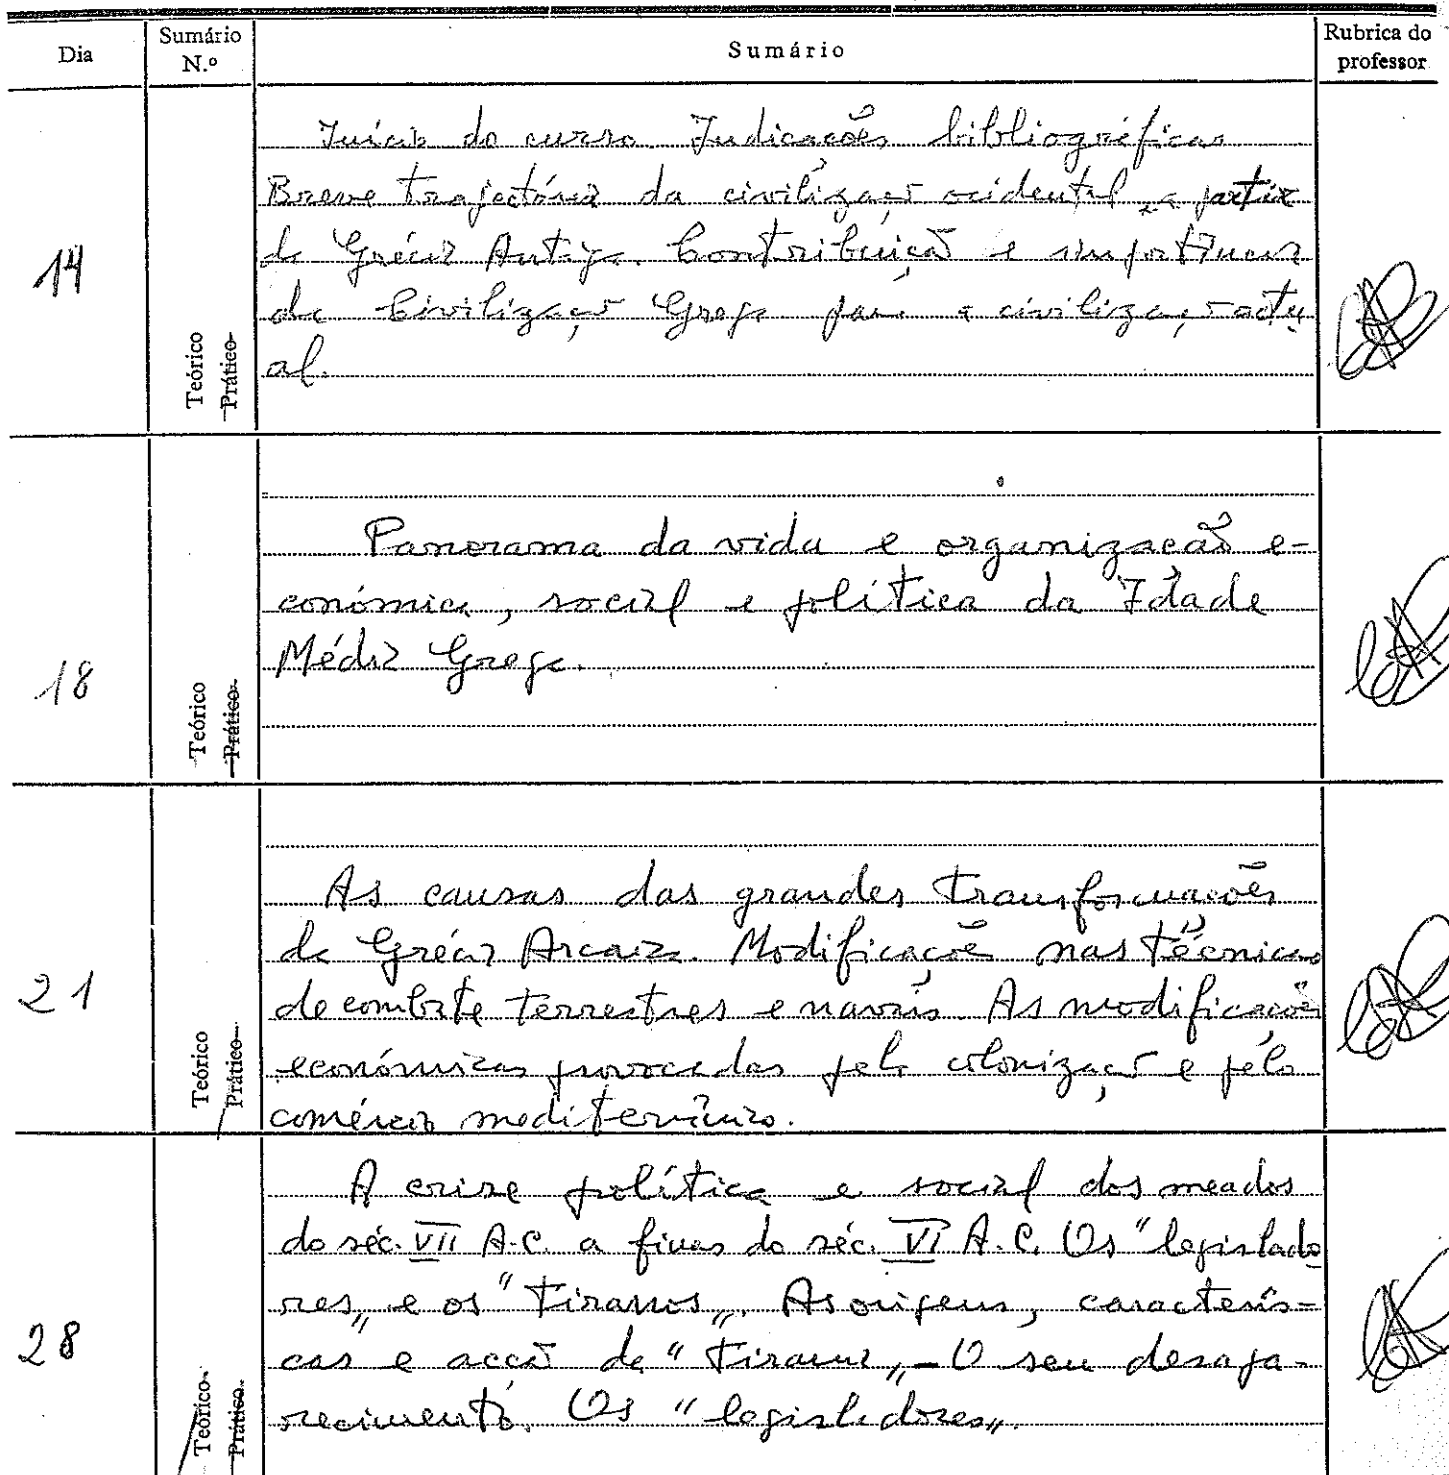 Dia
Sumário N.º
Sumário
Rubrica do professor
14
Teórico
Prático
Início do curso. Indicações bibliográficas
Breve trajectória da civilização ocidental, a partir
da Grécia Antiga. Contribuição e importância
da Civilização Grega para a civilização actu
al.
18
Teórico
Prático
Panorama da vida e organização e-
conómica, social e política da Idade
Média Grega.
21
Teórico
Prático
As causas das grandes transformações
da Grécia Arcaica. Modificações nas técnicas
de combate terrestres e navais. As modificações
económicas provocadas pela colonização e pelo
comércio mediterrânico.
28
Teórico
Prático
A crise política e social dos meados
do séc. VII A.C. a finas do séc. VI A.C. Os "legislado
res„ e os "Tiranos„. As origens, caracterís-
cas e acção da "Tirania„ - O seu desapa-
recimento. Os "legisladores„.